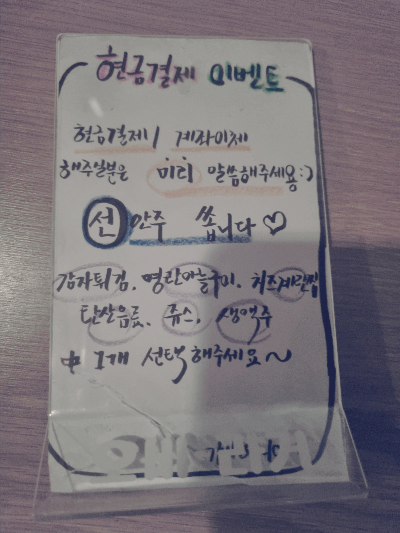 현금결제 이벤트
현금결제 / 계좌이체
해주실분은 미리 말씀해주세용:)
선 안주 쏩니다♡
감자튀김, 명란마늘구이, 치즈계란찜
탄산음료, 쥬스, 생맥주
中 1개 선택해주세요~